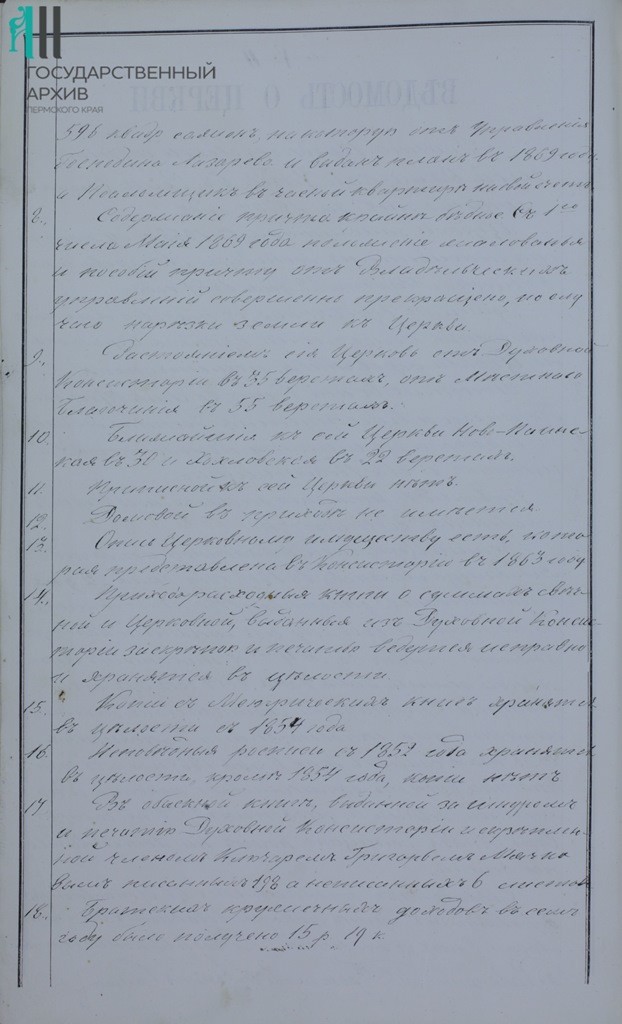 ГОСУДАРСТВЕННЫЙ
АРХИВ
ПЕРМСКОГО КРАЯ
ВѢДОМОСТЬ О ЦЕРКВИ
596 квадр. сажень, на которую отъ Управленія
Господина Лазарева и выданъ планъ въ 1869 году
а Псаломщикъ въ частной квартирѣ на свой счетъ.
8., Содержаніе причта крайне бѣдное съ 1го
числа Маія 1869 года жалованья
и пособій причту отъ Владѣльческихъ
управленій совершенно прекращено, по слу
чаю нарѣзки земли къ Церкви.
9., Разстояніемъ сія Церковь отъ Духовной
Консисторіи въ 35 верстахъ, отъ Мѣстнаго
Благочинія въ 55 верстахъ.
10. Ближайшія къ сей Церкви Ново-
кая въ 30 и Хохловская въ 22 верстахъ.
11. къ сей Церкви нѣтъ.
12. Домовой въ приходѣ не имѣется.
13. Опись Церковному имуществу есть, кото
рая представлена въ Консисторію въ 1863 году.
14., Приходорасходныя книги о суммахъ свѣч-
ной и Церковной, выданныя изъ Духовной Конси-
сторіи за скрѣпою и печатью ведутся исправно
и хранятся въ цѣлости.
15. Копіи съ Метрическихъ книгъ хранятся
въ цѣлости съ 1854 года
16. Исповѣдныя росписи съ 1852 года хранятся
въ цѣлости, кромѣ 1854 года, коіи нѣтъ
17 Въ обыскной книгѣ, выданной за шнуромъ
и печатью Духовной Консисторіи и скрѣплен-
ной членомъ Ключаремъ Григоріемъ
писанныхъ 198 а неписанныхъ 6 листовъ
18. Братскихъ кружечныхъ доходовъ въ семъ
году было получено 15 р. 19 к.